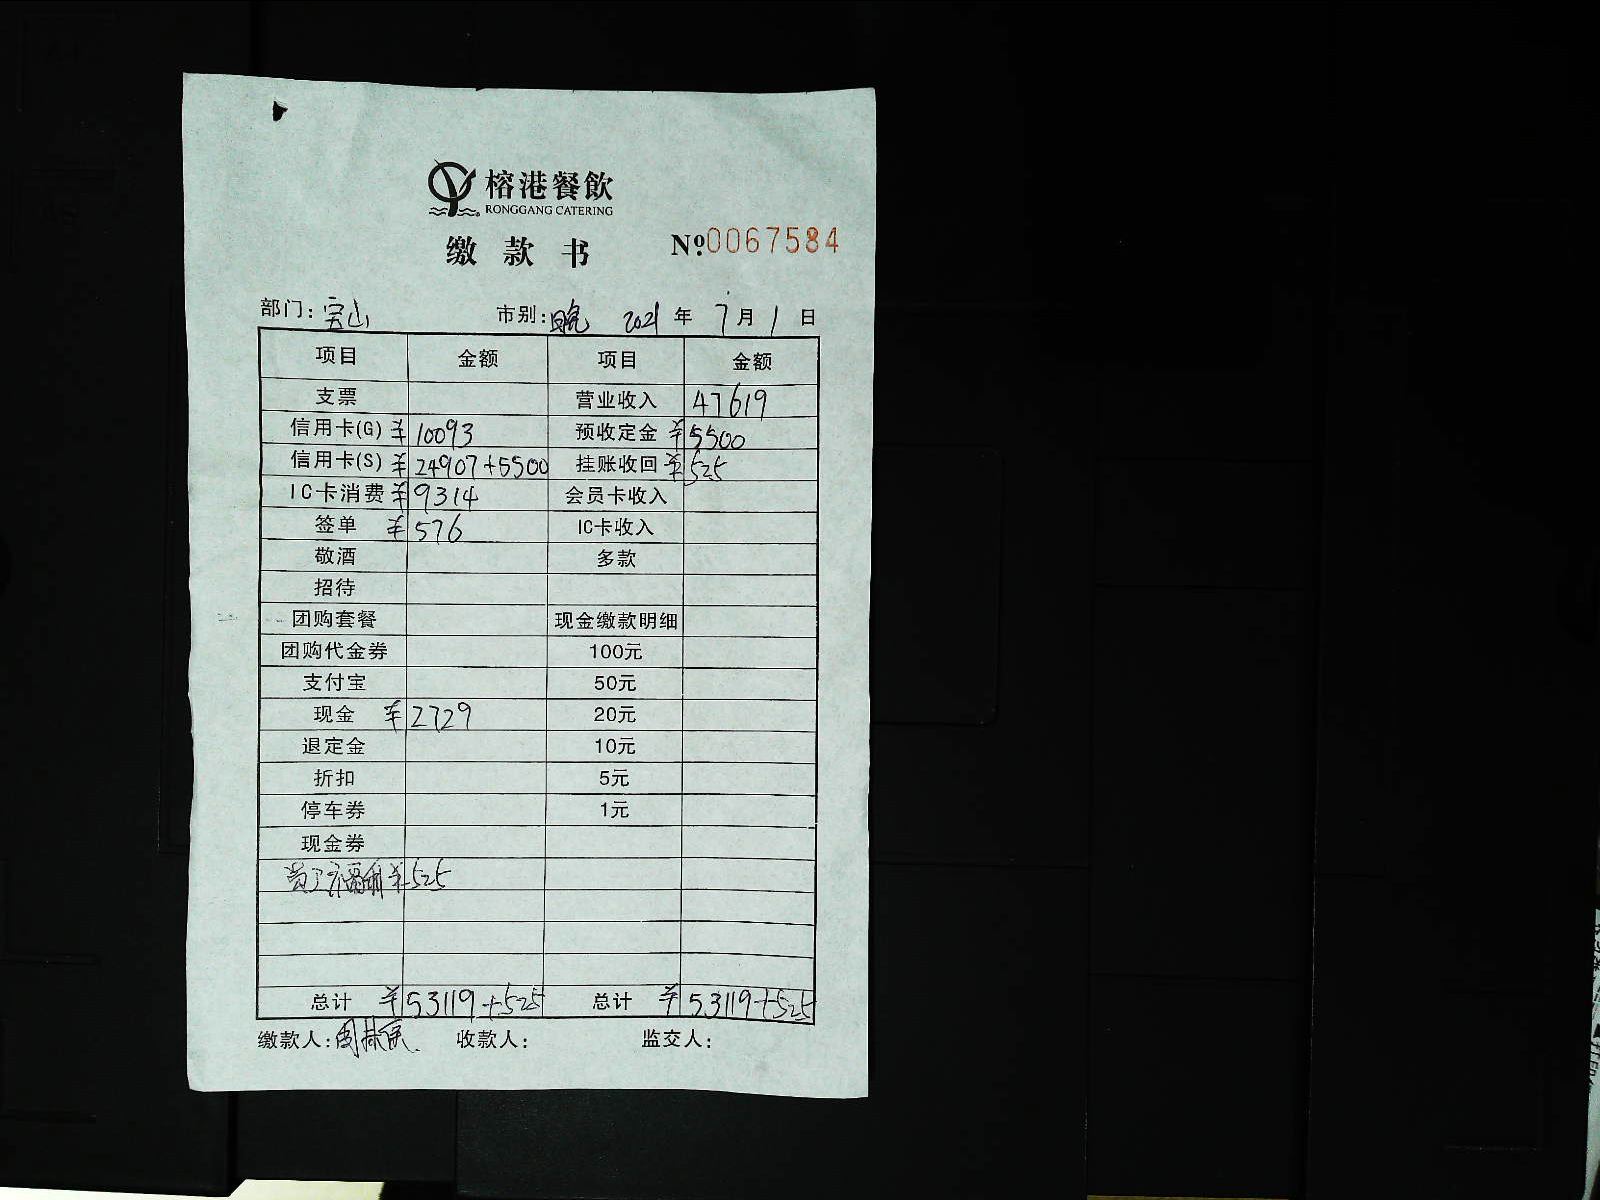 榕港餐飲
RONGGANG CATERING
缴款书 Nº:0067584
部门:宝山 市别:晚 2021年7月1日
项目 金额 项目 金额
支票 营业收入 47619
信用卡(G) ¥10093 预收定金 ¥5500
信用卡(S) ¥24907+5500 挂账收回 ¥525
IC卡消费 ¥9314 会员卡收入
签单 ¥576 IC卡收入
敬酒 多款
招待
团购套餐 现金缴款明细
团购代金券 100元
支付宝 50元
现金 ¥2729 20元
退定金 10元
折扣 5元
停车券 1元
现金券
员工福利 ¥525
总计 ¥53119+525 总计 ¥53119+525
缴款人:周 收款人: 监交人: